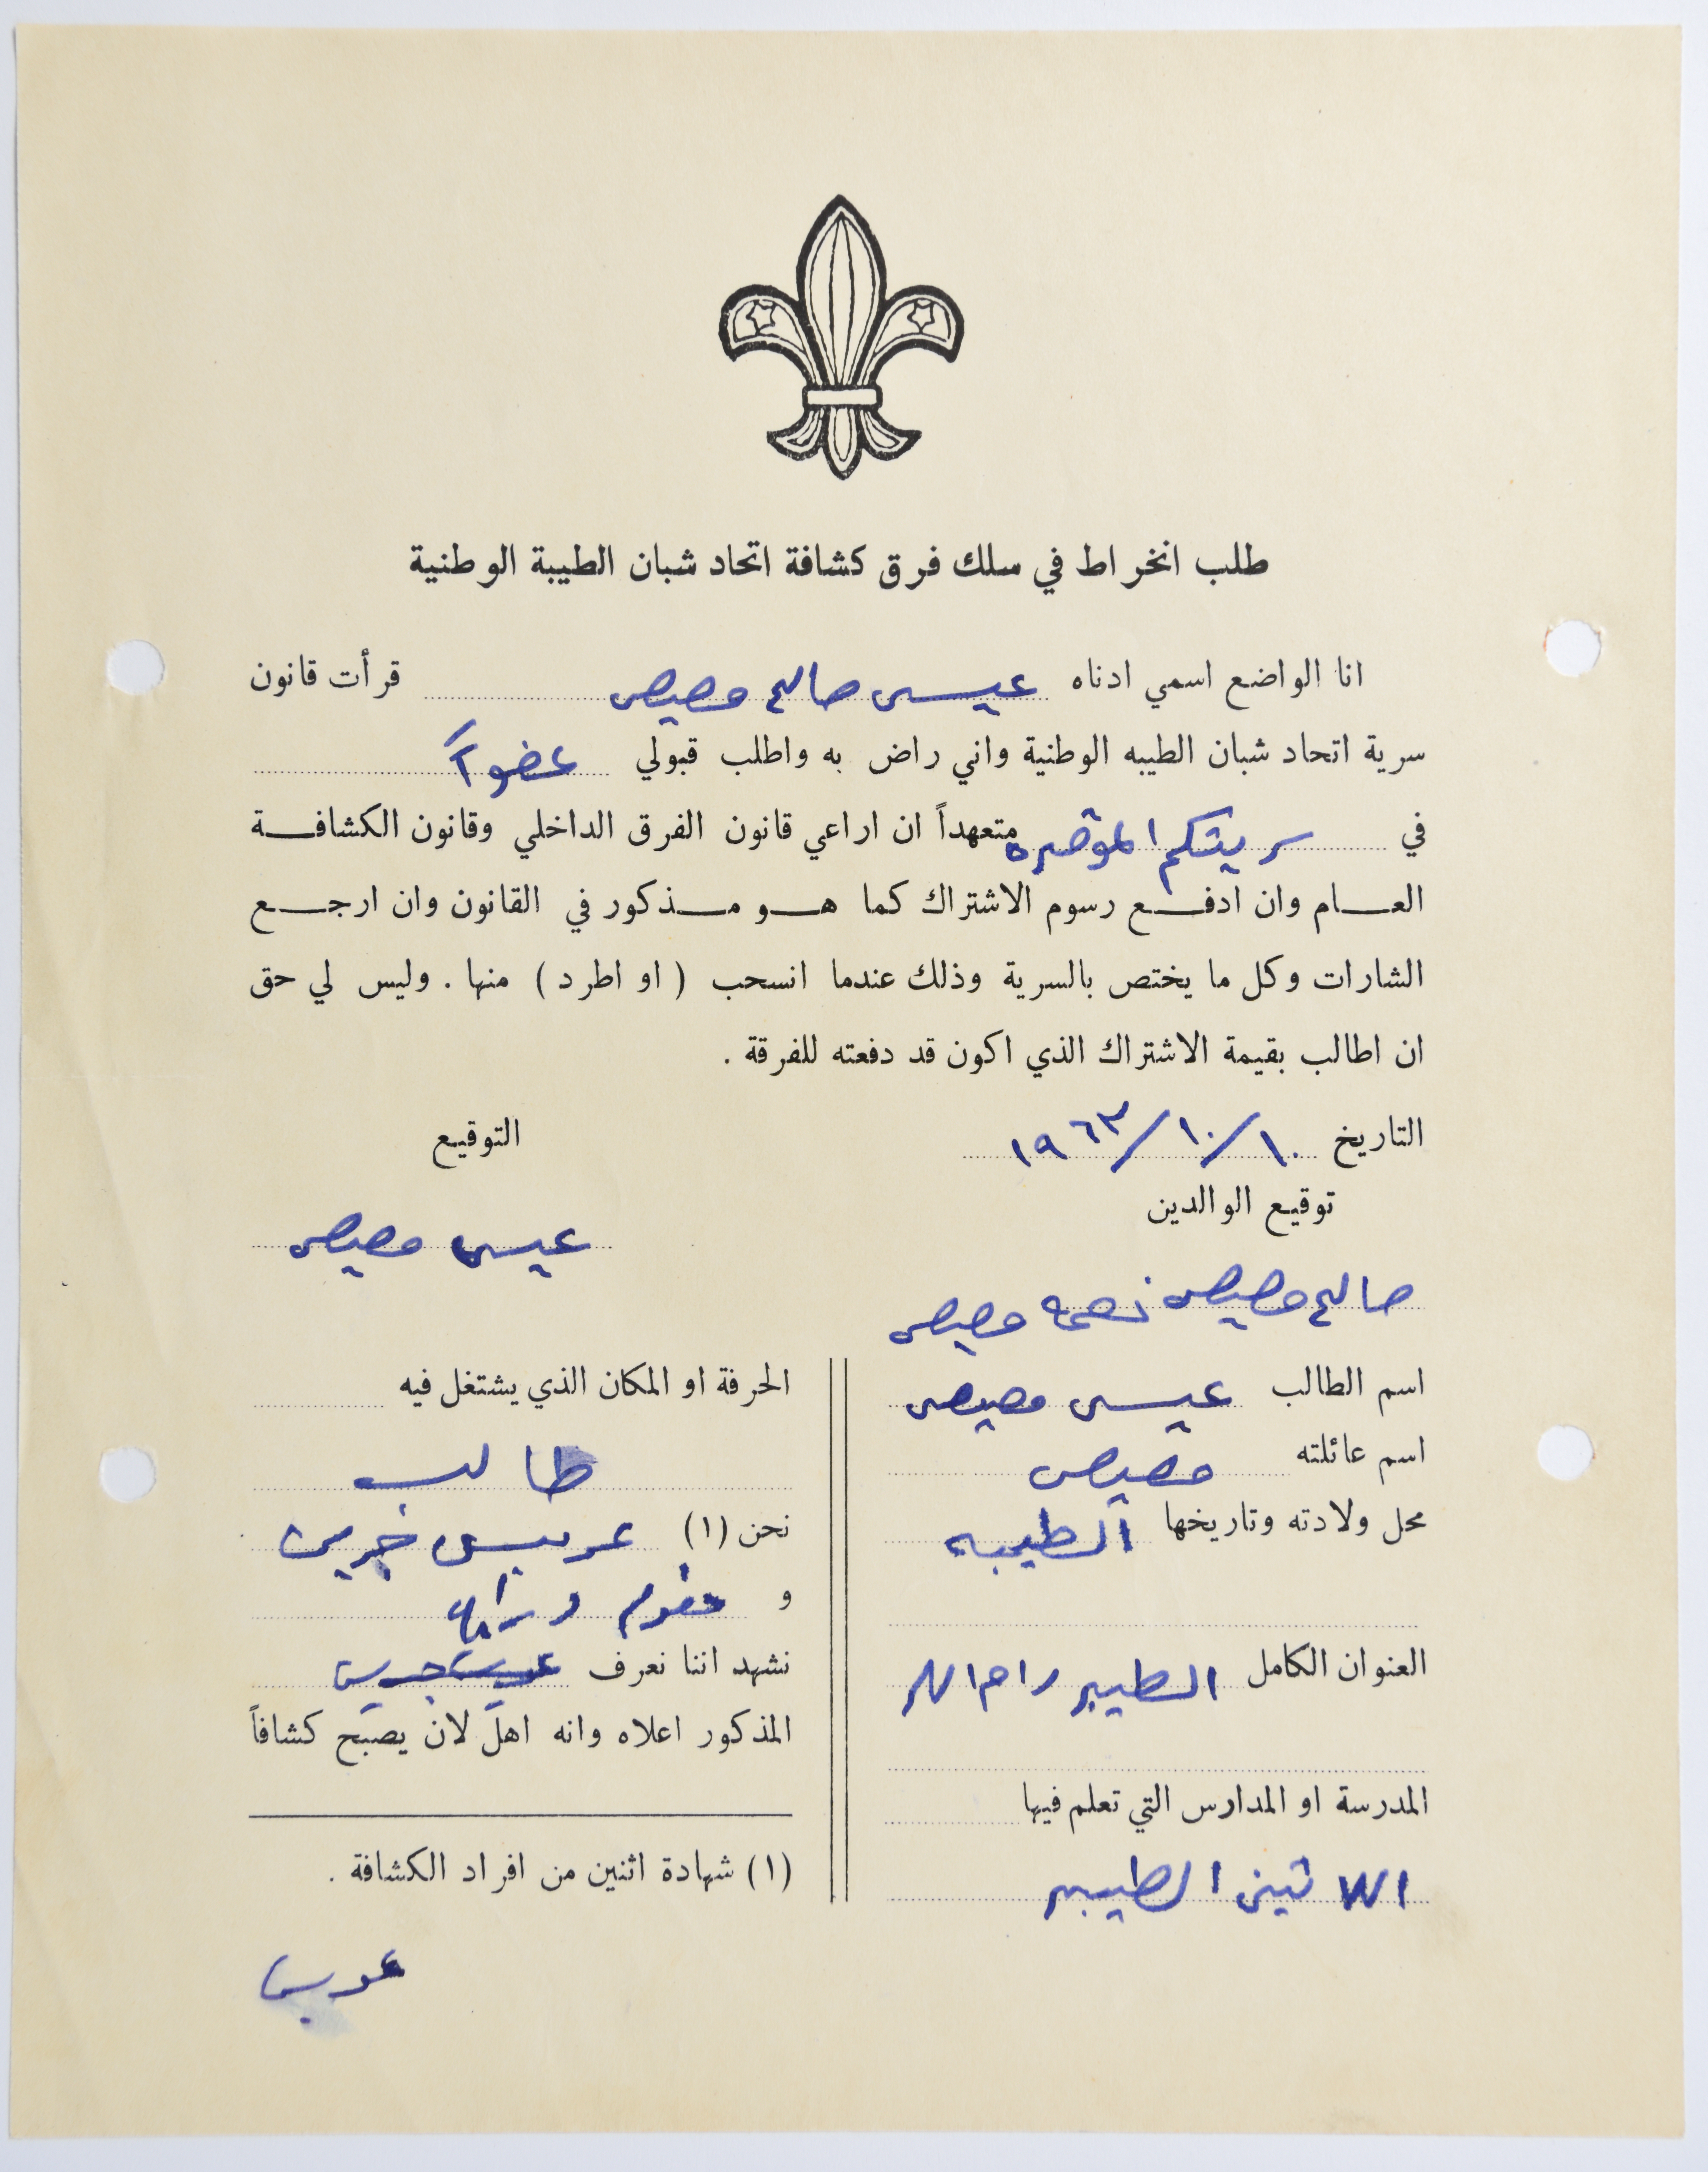 طلب انخراط في سلك فرق كشافة اتحاد شبان الطيبة الوطنية
انا الواضع اسمي ادناه عيسى صالح مصيص قرأت قانون
سرية اتحاد شبان الطيبه الوطنية واني راض به واطلب قبولي عضواً
في سريتكم الموقره متعهداً ان اراعي قانون الفرق الداخلي وقانون الكشافة
العام وان ادفع رسوم الاشتراك كما هو مذكور في القانون وان ارجع
الشارات وكل ما يختص بالسرية وذلك عندما انسحب (او اطرد) منها. وليس لي حق
ان اطالب بقيمة الاشتراك الذي اكون قد دفعته للفرقة.
التاريخ ١٠/١٠/١٩٦٣
التوقيع
توقيع الوالدين
عيسى مصيص
صالح مصيص نعمه مصيص
اسم الطالب عيسى مصيص
اسم عائلته مصيص
محل ولادته وتاريخها الطيبه
العنوان الكامل الطيبه رام الله
المدرسة او المدارس التي تعلم فيها
اللاتين الطيبه
الحرفة او المكان الذي يشتغل فيه
طالب
نحن (١) خريس
و
نشهد اننا نعرف
المذكور اعلاه وانه اهل لان يصبح كشافاً
(١) شهادة اثنين من افراد الكشافة.